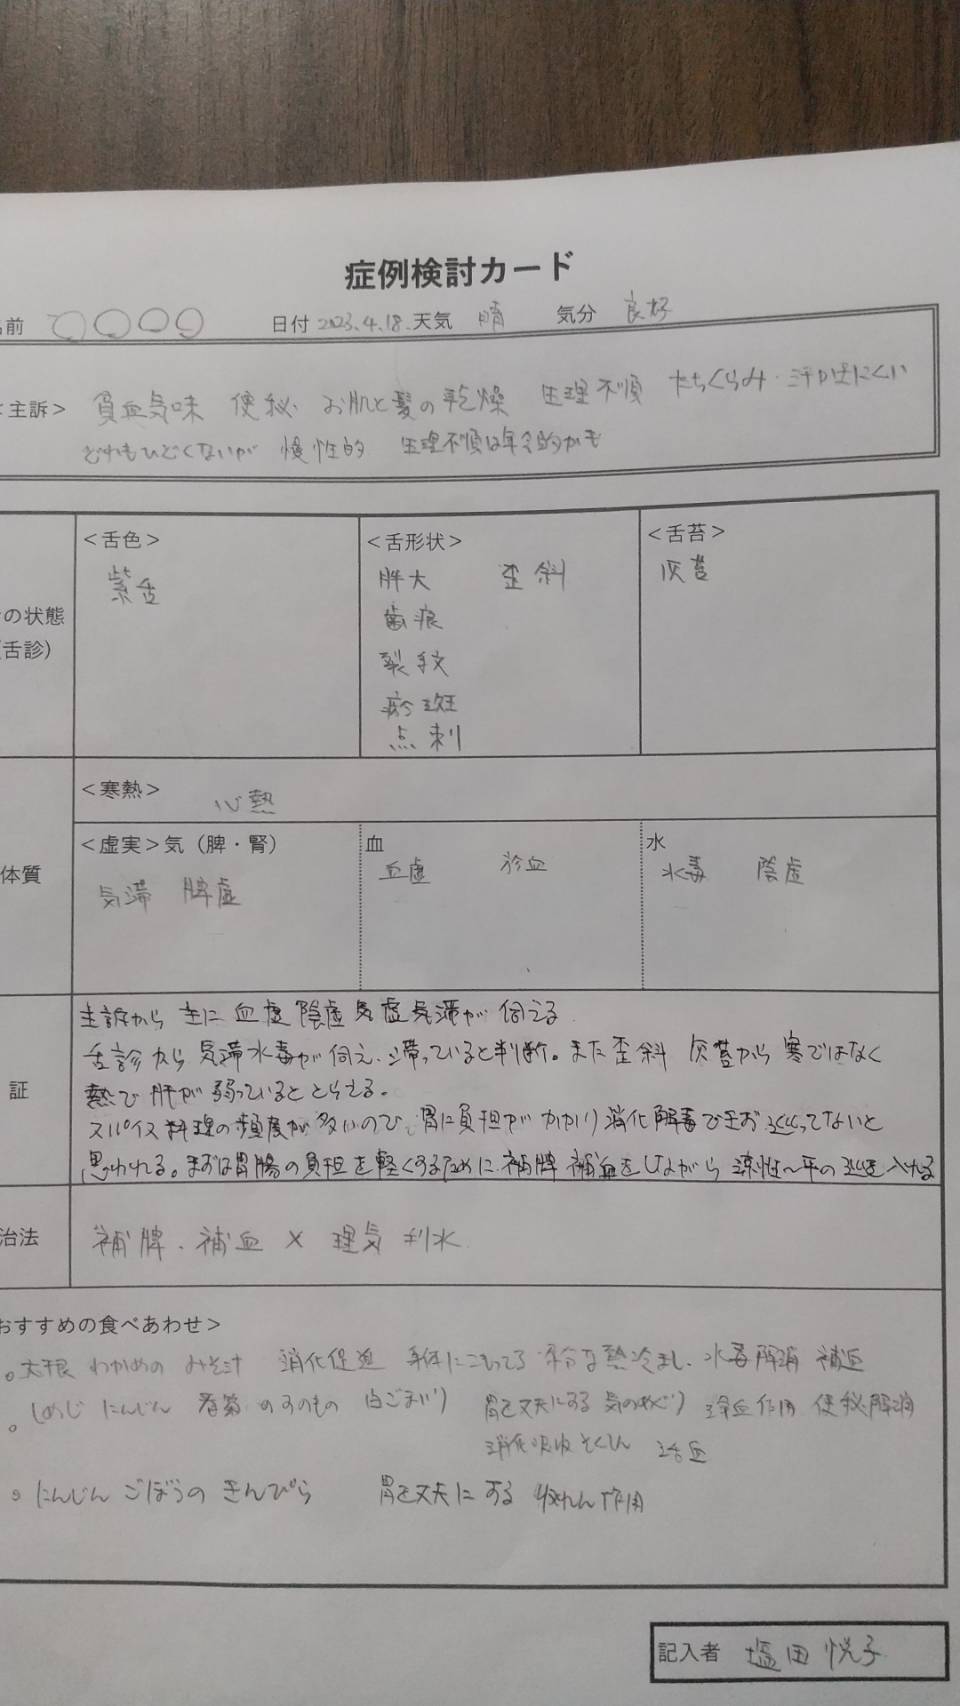 症例検討カード
前 〇〇〇〇 日付 2023.4.18. 天気 晴 気分 良好
主訴> 貧血気味 便秘 お肌と髪の乾燥 生理不順 たちくらみ・汗が出にくい
どれもひどくないが 慢性的 生理不順は年令的かも
<舌色> <舌形状> <舌苔>
紫舌 胖大 歪斜 灰苔
の状態 歯痕
舌診) 裂紋
瘀斑
点刺
<寒熱> 心熱
体質 <虚実>気(脾・腎) 血 水
気滞 脾虚 血虚 瘀血 水毒 陰虚
証 主訴から 主に 血虚 陰虚 気虚 気滞が 伺える
舌診から 気滞 水毒が 伺え、滞っていると判断。また 歪斜 灰苔から 寒ではなく
熱で 肝が 弱っていると とらえる。
スパイス料理の頻度が多いので、胃に負担が かかり 消化 解毒できお 巡ってないと
思われる。まずは胃腸の負担を軽くするために、補脾 補血をしながら 涼性~平の を入れる
治法 補脾、補血 × 理気 利水
おすすめの食べあわせ>
大根 わかめの みそ汁 消化促進 身体にこもってる 余分な熱冷まし、水毒解消 補血
しめじ にんじん 春菊 のすのもの 白ごまぶり 胃を丈夫にする 気のめぐり 増血作用 便秘解消
消化吸収 そくしん 活血
にんじん ごぼうの きんぴら 胃を丈夫にする 収れん作用
記入者 塩田 悦子